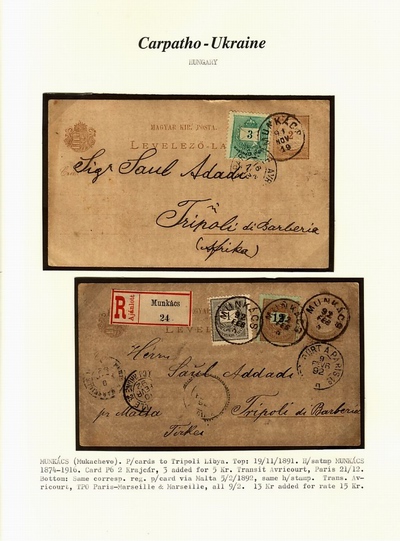 Carpatho-Ukraine
HUNGARY
MAGYAR KIR. POSTA.
LEVELEZŐ-LA
3
MUNKÁCS
91
NOV
19
Sigr Saul Adadi
Tripoli di Barberia
(Afrika)
R
Ajánlott
Munkács
24
LEVEL
1
12
MUNKÁCS
92
FEB
MUNKÁCS
92
FEB
MUNKÁCS
92
FEB
Herrn
Saul Addadi
per Malta
Tripoli di Barberia
Tirkei
MUNKÁCS (Mukachevo). P/cards to Tripoli Libya. Top: 19/11/1891. H/satmp MUNKÁCS
1874-1916. Card P6 2 Krajcár, 3 added for 5 Kr. Transit Avricourt, Paris 21/12.
Bottom: Same corresp. reg. p/card via Malta 5/2/1892, same h/stamp. Trans. Av-
ricourt, TPO Paris-Marseille & Marseille, all 9/2. 13 Kr added for rate 15 Kr.